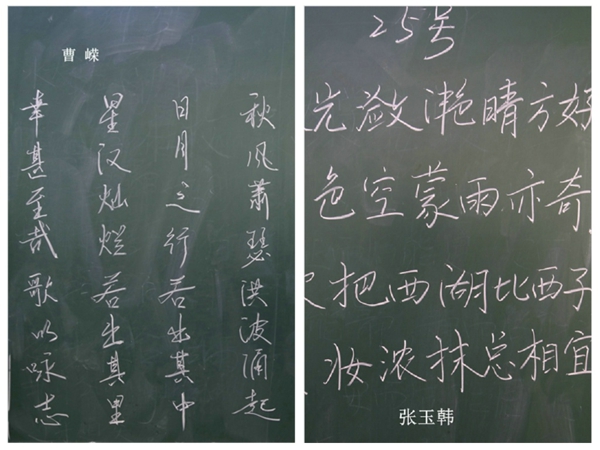 曹嵘
秋风萧瑟洪波涌起
日月之行若出其中
星汉灿烂若出其里
幸甚至哉歌以咏志
25号
光潋滟晴方好
色空蒙雨亦奇
把西湖比西子
妆浓抹总相宜
张玉韩